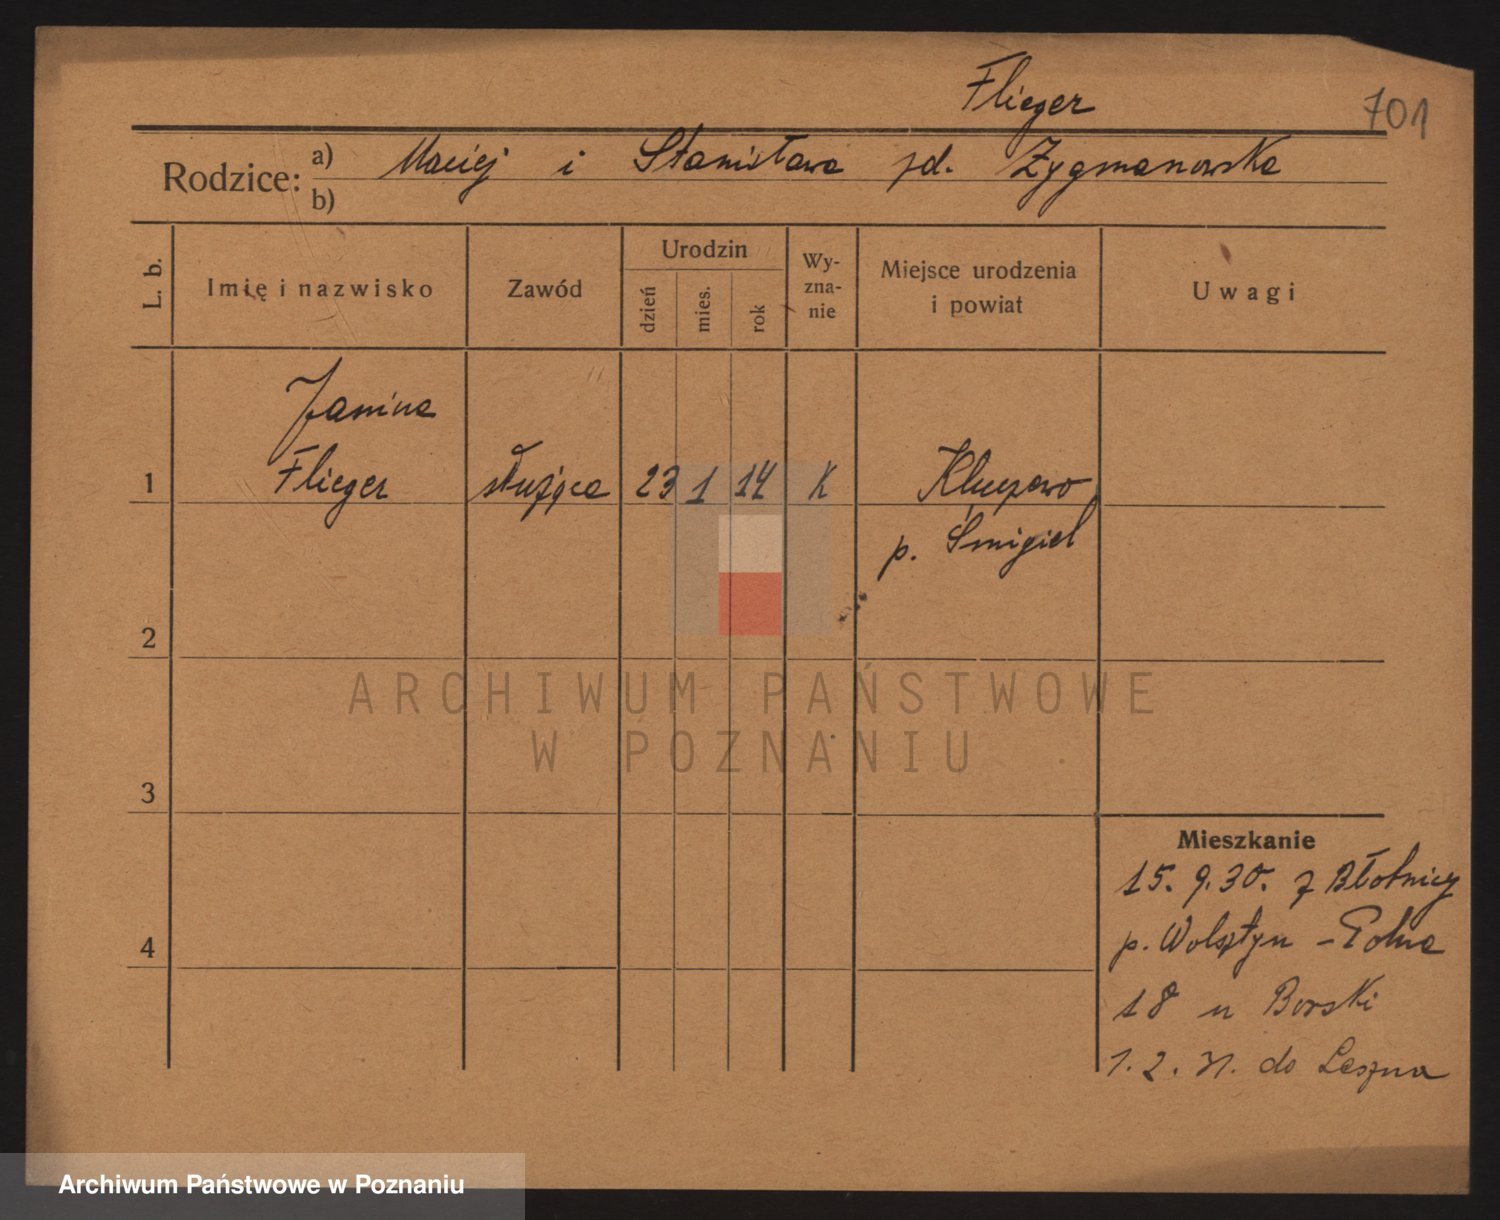 Flieger
701
Rodzice:
a) Maciej i Stanisława zd. Zygmanowska
b)
L. b.
Imię i nazwisko
Zawód
Urodzin
dzień
mies.
rok
Wy-
zna-
nie
Miejsce urodzenia
i powiat
Uwagi
Janina
1 Flieger służąca 23 1 14 K Kluczewo
p. Śmigiel
2
3
4
ARCHIWUM PAŃSTWOWE
W POZNANIU
Mieszkanie
15. 9. 30. z Błotnicy
p. Wolsztyn - Polna
18 u Borski
1. 2. 31. do Leszna
Archiwum Państwowe w Poznaniu